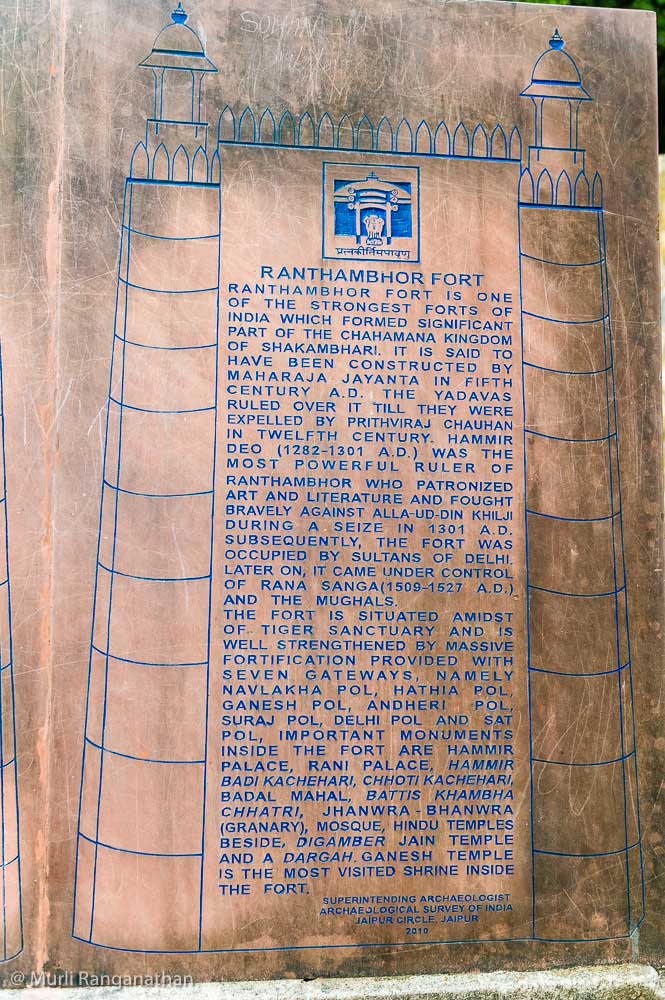 SOHAN
प्रत्नकीर्तिमपावृणु
RANTHAMBHOR FORT
RANTHAMBHOR FORT IS ONE
OF THE STRONGEST FORTS OF
INDIA WHICH FORMED SIGNIFICANT
PART OF THE CHAHAMANA KINGDOM
OF SHAKAMBHARI. IT IS SAID TO
HAVE BEEN CONSTRUCTED BY
MAHARAJA JAYANTA IN FIFTH
CENTURY A.D. THE YADAVAS
RULED OVER IT TILL THEY WERE
EXPELLED BY PRITHVIRAJ CHAUHAN
IN TWELFTH CENTURY. HAMMIR
DEO (1282-1301 A.D.) WAS THE
MOST POWERFUL RULER OF
RANTHAMBHOR WHO PATRONIZED
ART AND LITERATURE AND FOUGHT
BRAVELY AGAINST ALLA-UD-DIN KHILJI
DURING A SEIZE IN 1301 A.D.
SUBSEQUENTLY, THE FORT WAS
OCCUPIED BY SULTANS OF DELHI.
LATER ON, IT CAME UNDER CONTROL
OF RANA SANGA(1509-1527 A.D.)
AND THE MUGHALS.
THE FORT IS SITUATED AMIDST
OF TIGER SANCTUARY AND IS
WELL STRENGTHENED BY MASSIVE
FORTIFICATION PROVIDED WITH
SEVEN GATEWAYS, NAMELY
NAVLAKHA POL, HATHIA POL,
GANESH POL, ANDHERI POL,
SURAJ POL, DELHI POL AND SAT
POL, IMPORTANT MONUMENTS
INSIDE THE FORT ARE HAMMIR
PALACE, RANI PALACE, HAMMIR
BADI KACHEHARI, CHHOTI KACHEHARI,
BADAL MAHAL, BATTIS KHAMBHA
CHHATRI, JHANWRA-BHANWRA
(GRANARY), MOSQUE, HINDU TEMPLES
BESIDE, DIGAMBER JAIN TEMPLE
AND A DARGAH. GANESH TEMPLE
IS THE MOST VISITED SHRINE INSIDE
THE FORT.
SUPERINTENDING ARCHAEOLOGIST
ARCHAEOLOGICAL SURVEY OF INDIA
JAIPUR CIRCLE, JAIPUR
2010
@ Murli Ranganathan